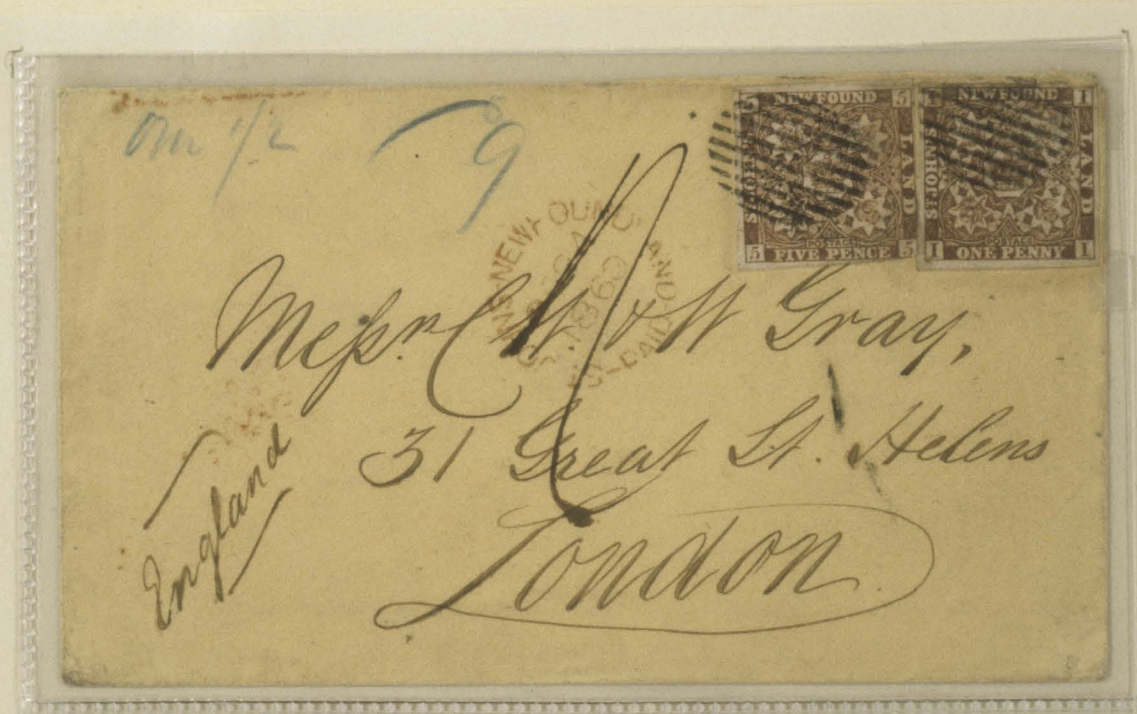 9
5 NEWFOUND 5
ST JOHN'S
LAND
POSTAGE
5 FIVE PENCE 5
1 NEWFOUND 1
ST JOHN'S
LAND
POSTAGE
1 ONE PENNY 1
NEWFOUNDLAND
1860
PAID
Messrs C & W Gray,
31 Great St. Helens
London
England